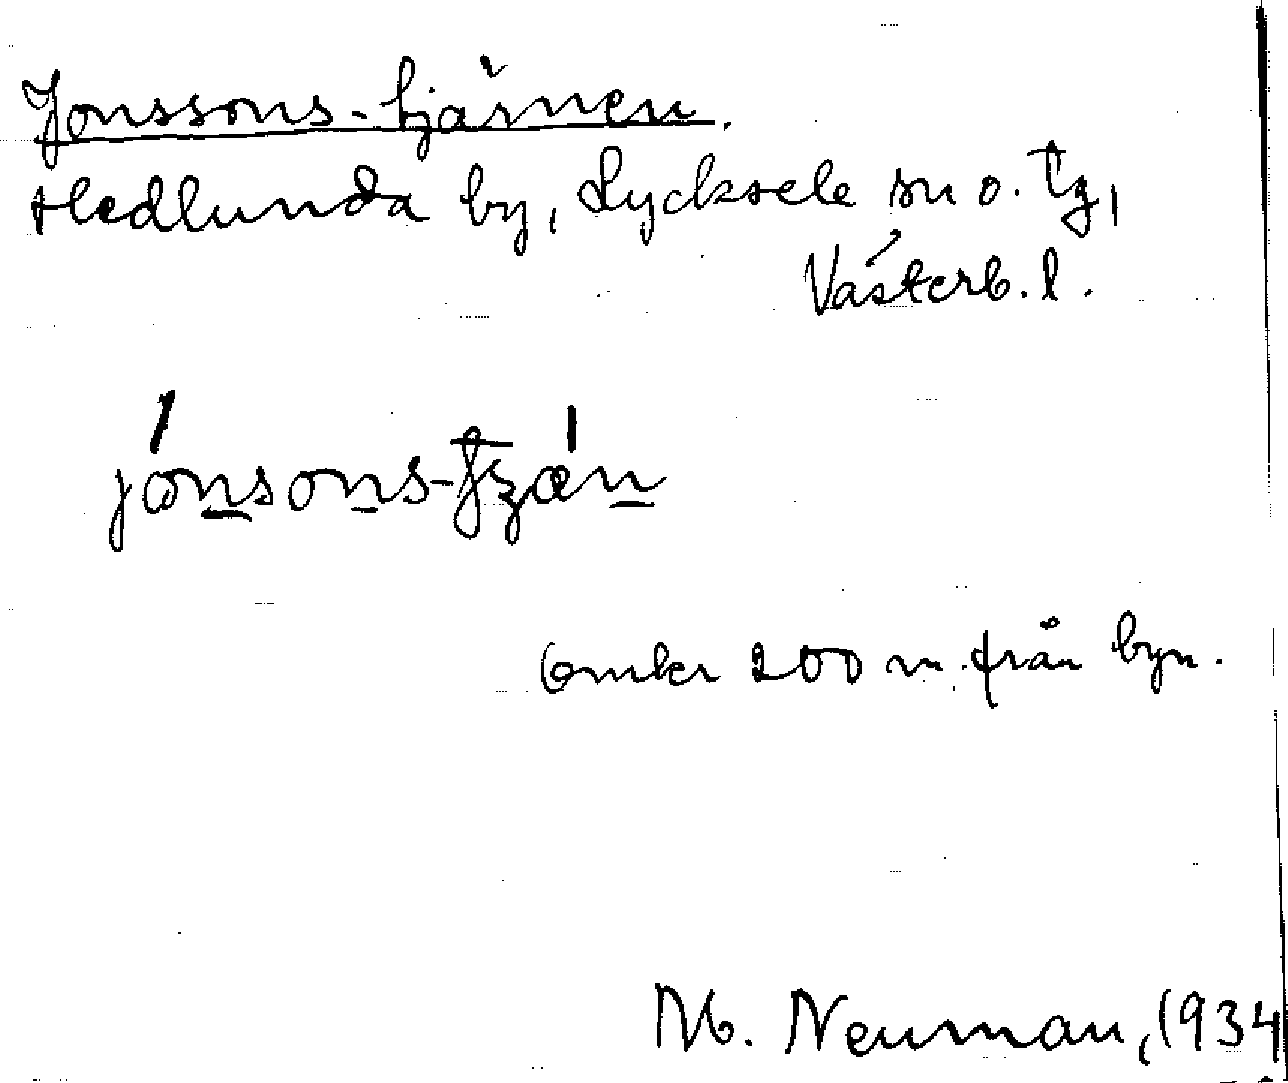 Jonssons-tjärnen.
Hedlunda by, Lycksele sn o. tg,
Västerb. l.
jónsons-
Omkr 200 m. från byn.
M. Neuman, 1934